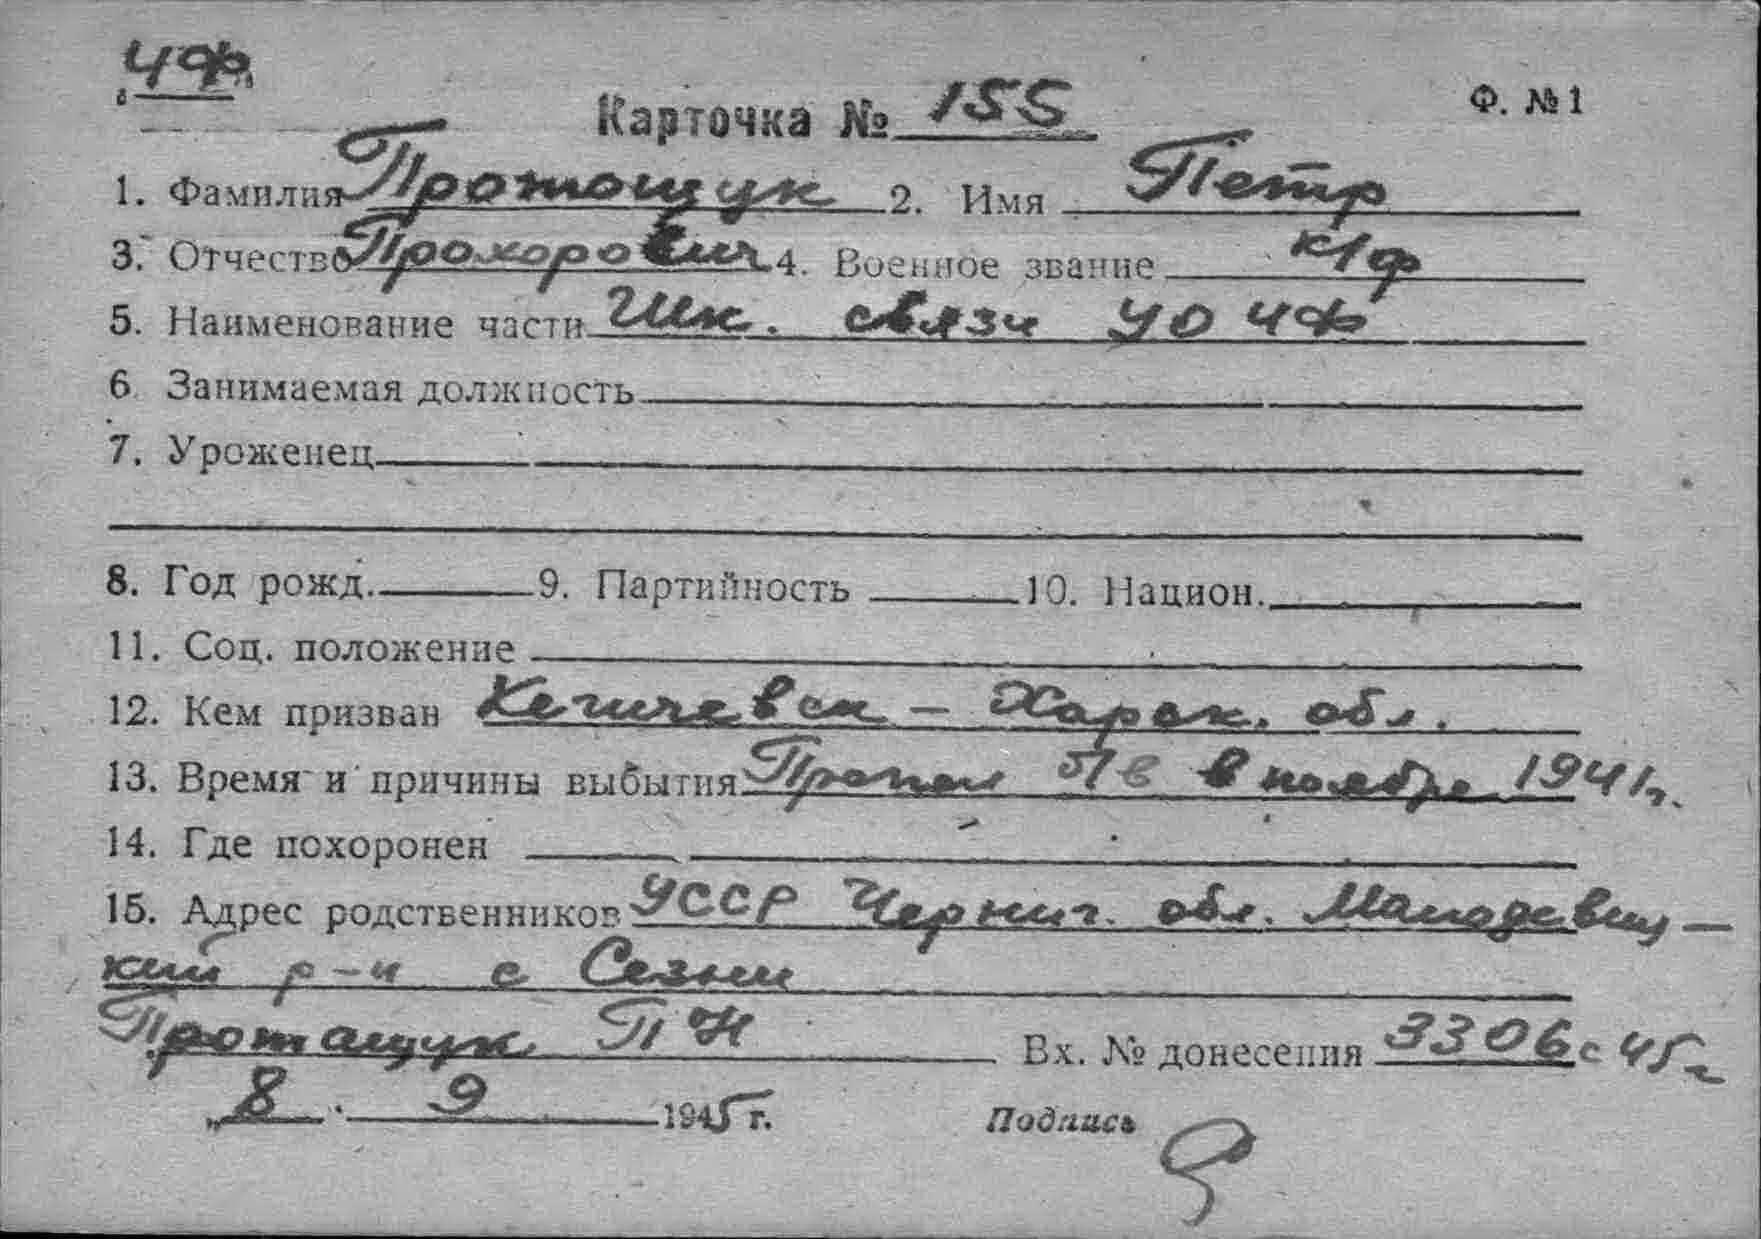 ЧФ.
Карточка № 155
Ф. №1
1. Фамилия Протощук 2. Имя Петр
3. Отчество Прохорович 4. Военное звание к/ф
5. Наименование части Шк. связи УО ЧФ
6. Занимаемая должность
7. Уроженец
8. Год рожд. 9. Партийность 10. Национ.
11. Соц. положение
12. Кем призван Кегичевск – Харьк. обл.
13. Время и причины выбытия Пропал в ноябре 1941г.
14. Где похоронен
15. Адрес родственников УССР Черниг. обл. Малодевиц–
кий р-н с Сезки
Протащук П Н Вх. № донесения 3306с 45г
„8. 9 1945 г.
Подпись